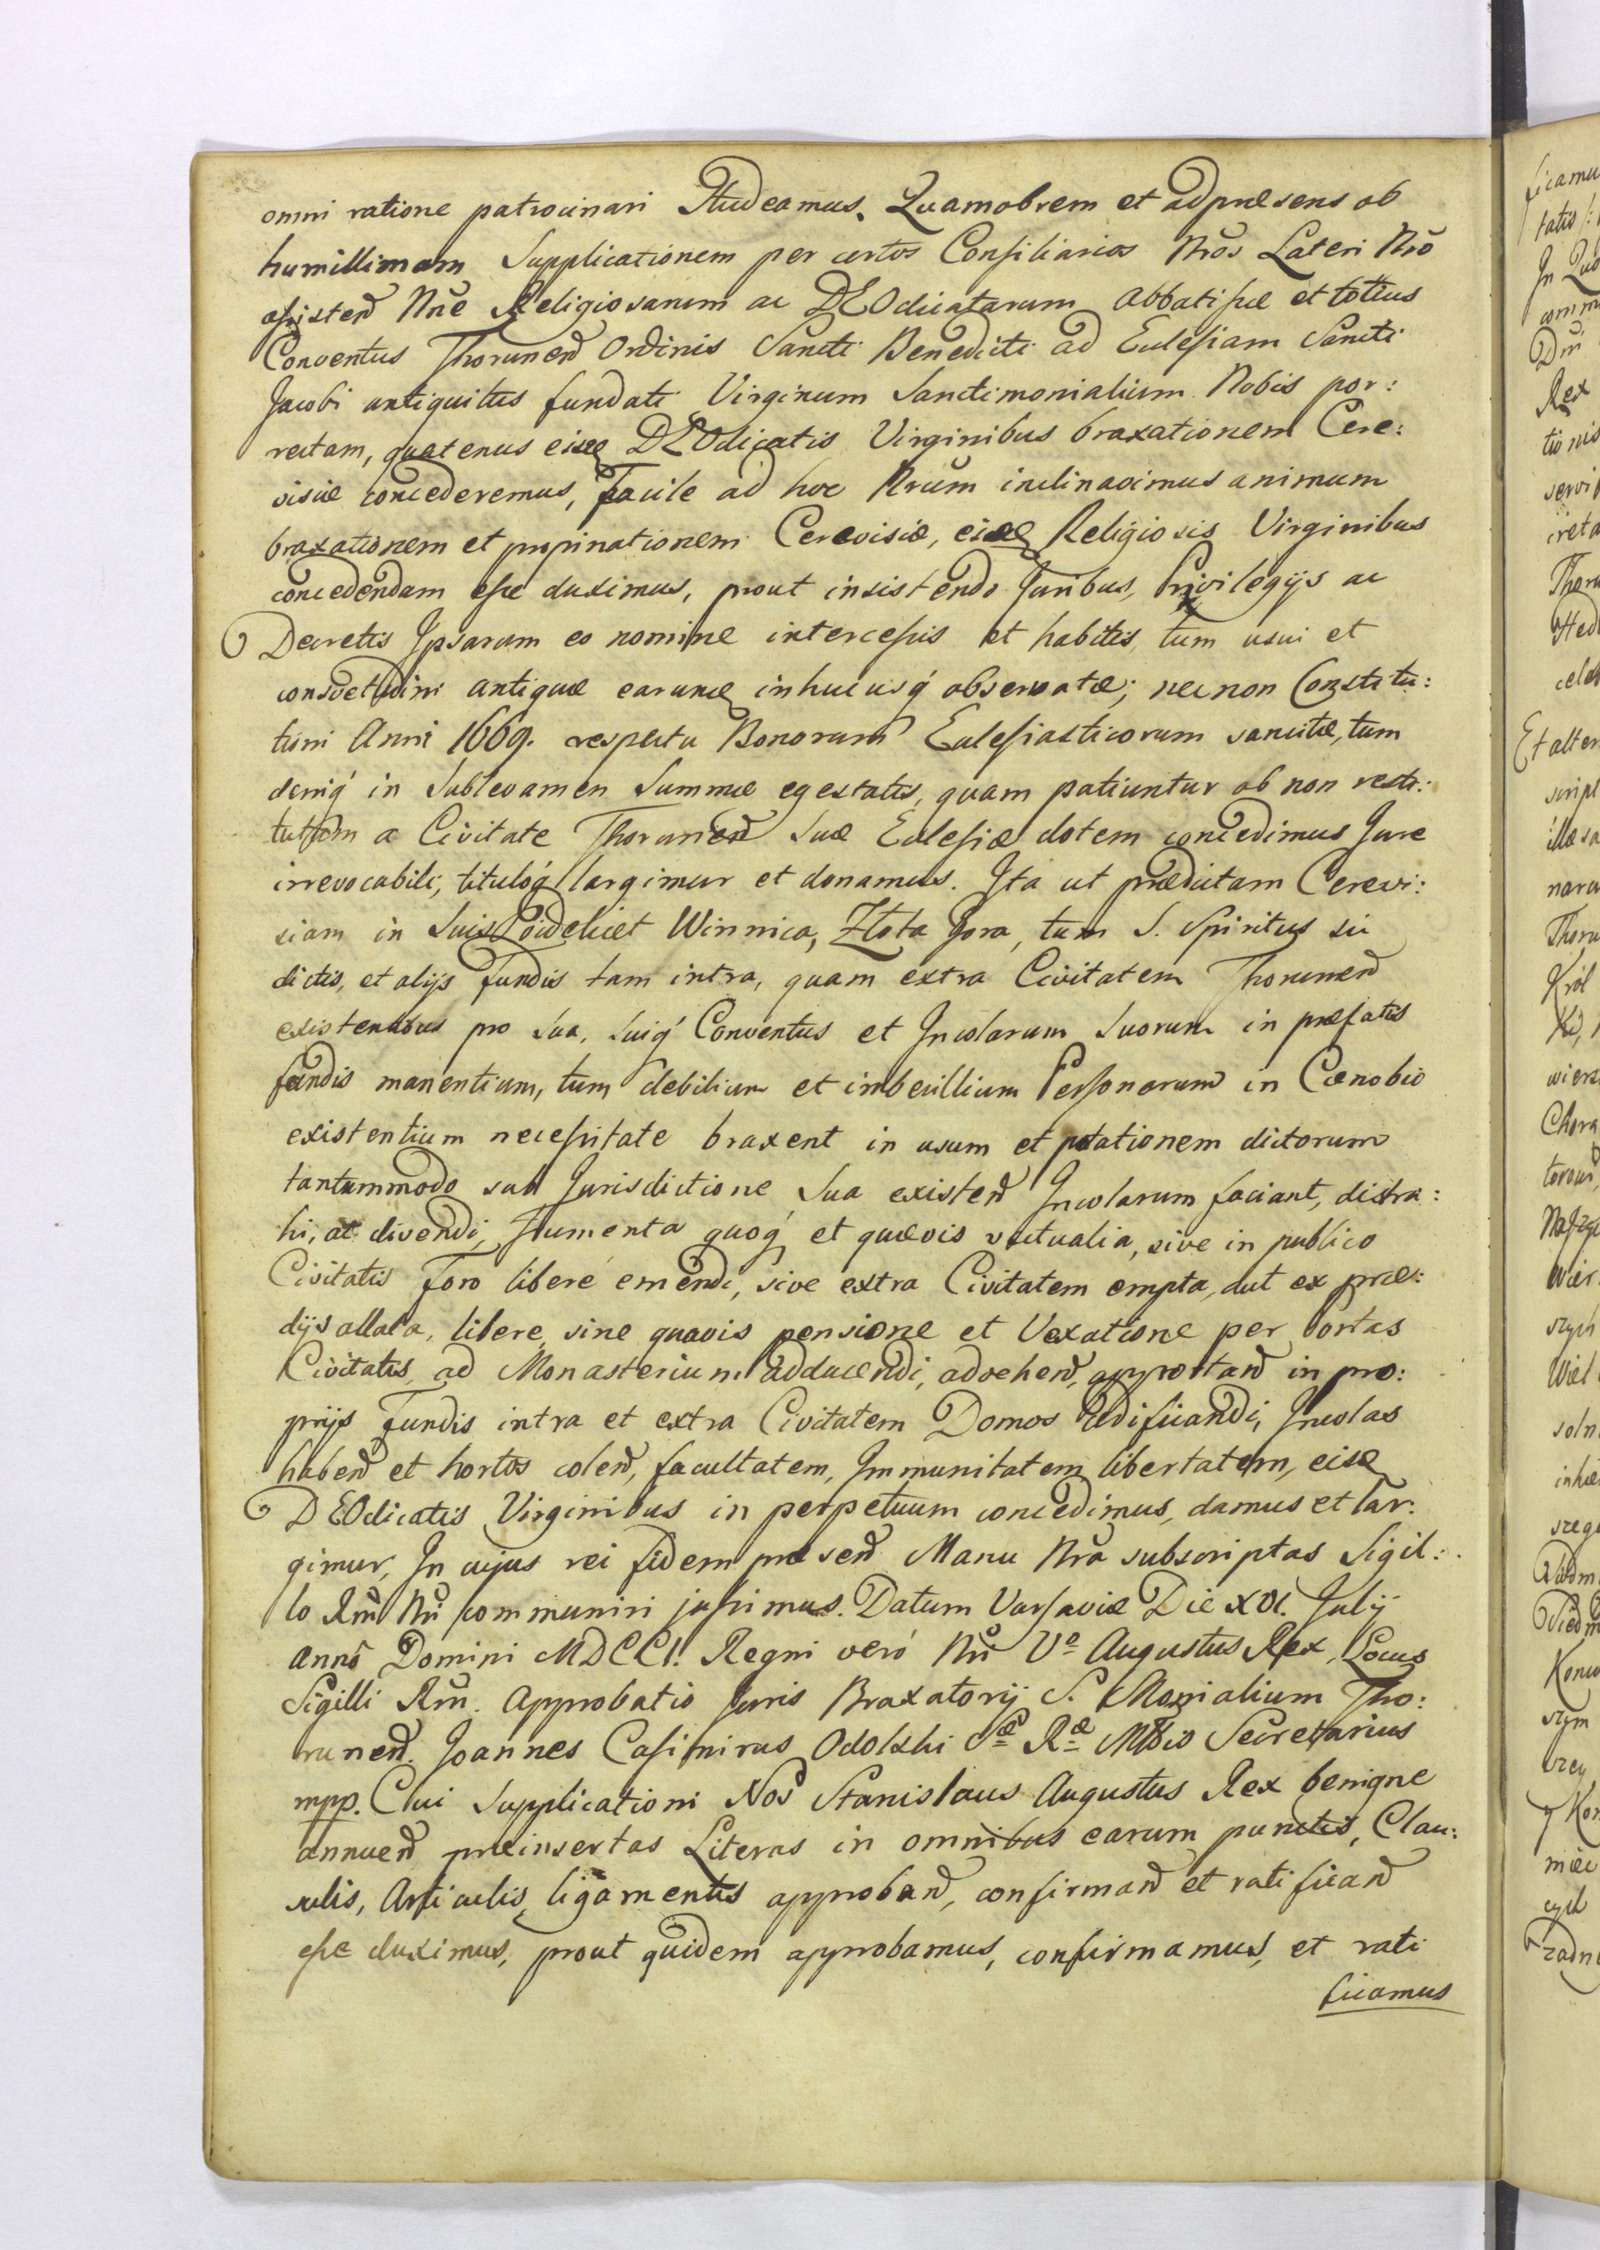 omni ratione patrocinari Studeamus. Quamobrem et ad præsens ob
humillimam Supplicationem per certos Consiliarios Nrõs Lateri Nrõ
assisteñ Nñe Religiosarum ac DEOdicatarum Abbatissæ et totius
Conventus Thoruneñ Ordinis Sancti Benedicti ad Eclesiam Sancti
Jacobi antiquitus fundati Virginum Sanctimonialium Nobis por:
rectam, quatenus eisq DEOdicatis Virginibus braxationem Cere:
visiæ concederemus, Facile ad hoc Nrũm inclinavimus animum
braxationem et propinationem Cerevisiæ, eisq Religiosis Virginibus
concedendam esse duximus, prout insistendo Juribus, Privilegijs ac
Decretis Ipsarum eo nomine intercessis et habitis, tum usui et
consvetudini antiquæ earumq inhucusq́ observatæ; necnon Constitu:
tioni Anni 1669. respectu Bonorum Eclesiasticorum sancitæ, tum
deniq́ in Sublevamen Summæ egestatis, quam patiuntur ob non resti:
tutam a Civitate Thoruneñ Suæ Eclesiæ dotem concedimus Jure
irrevocabili, tituloq́ largimur et donamus. Ita ut prædictam Cerevi:
siam in Suis videlicet Winnica, Złota Gora, tum S. Spiritus sic
dictis, et alijs fundis tam intra, quam extra Civitatem Thoruneñ
existentibus pro Sua, Suiq́ Conventus et Incolarum Suorum in præfatis
fundis manentium, tum debilium et imbecillium Personarum in Cænobio
existentium necessitate braxent in usum et potationem dictorum
tantummodo sub Jurisdictione Sua existeñ Incolarum faciant, distra:
hi, ac divendi, frumenta quoq́ et quævis victualia, sive in publico
Civitatis Foro libere emendi, sive extra Civitatem empta, aut ex præ:
dijs allata, libere sine quavis pensione et Vexatione per Portas
Civitatis, ad Monasterium adducendi, adveheñ, apportañ in pro:
prijs Fundis intra et extra Civitatem Domos Ædificandi, Incolas
habeñ et hortos coleñ, facultatem, Immunitatem libertatem, eisq
DEOdicatis Virginibus in perpetuum concedimus, damus et lar:
gimur, In cujus rei fidem præseñ Manu Nrã subscriptas Sigil:
lo Rñi Nri communiri jussimus. Datum Varsaviæ Die XVI. Julij
Anno Domini MDCCI. Regni veró Nri Vº Augustus Rex, Locus
Sigilli Rñi. Approbatio Juris Braxatorij S. Monialium Tho:
runeñ. Joannes Casimirus Odolski Sæ Ræ Mttis Secretarius
mpp. Cui Supplicationi Nos Stanislaus Augustus Rex benigne
annueñ præinsertas Literas in omnibus earum punctis, Clau:
sulis, Articulis, ligamentis approbañ, confirmañ et ratificañ
esse duximus, prout quidem approbamus, confirmamus, et rati
ficamus